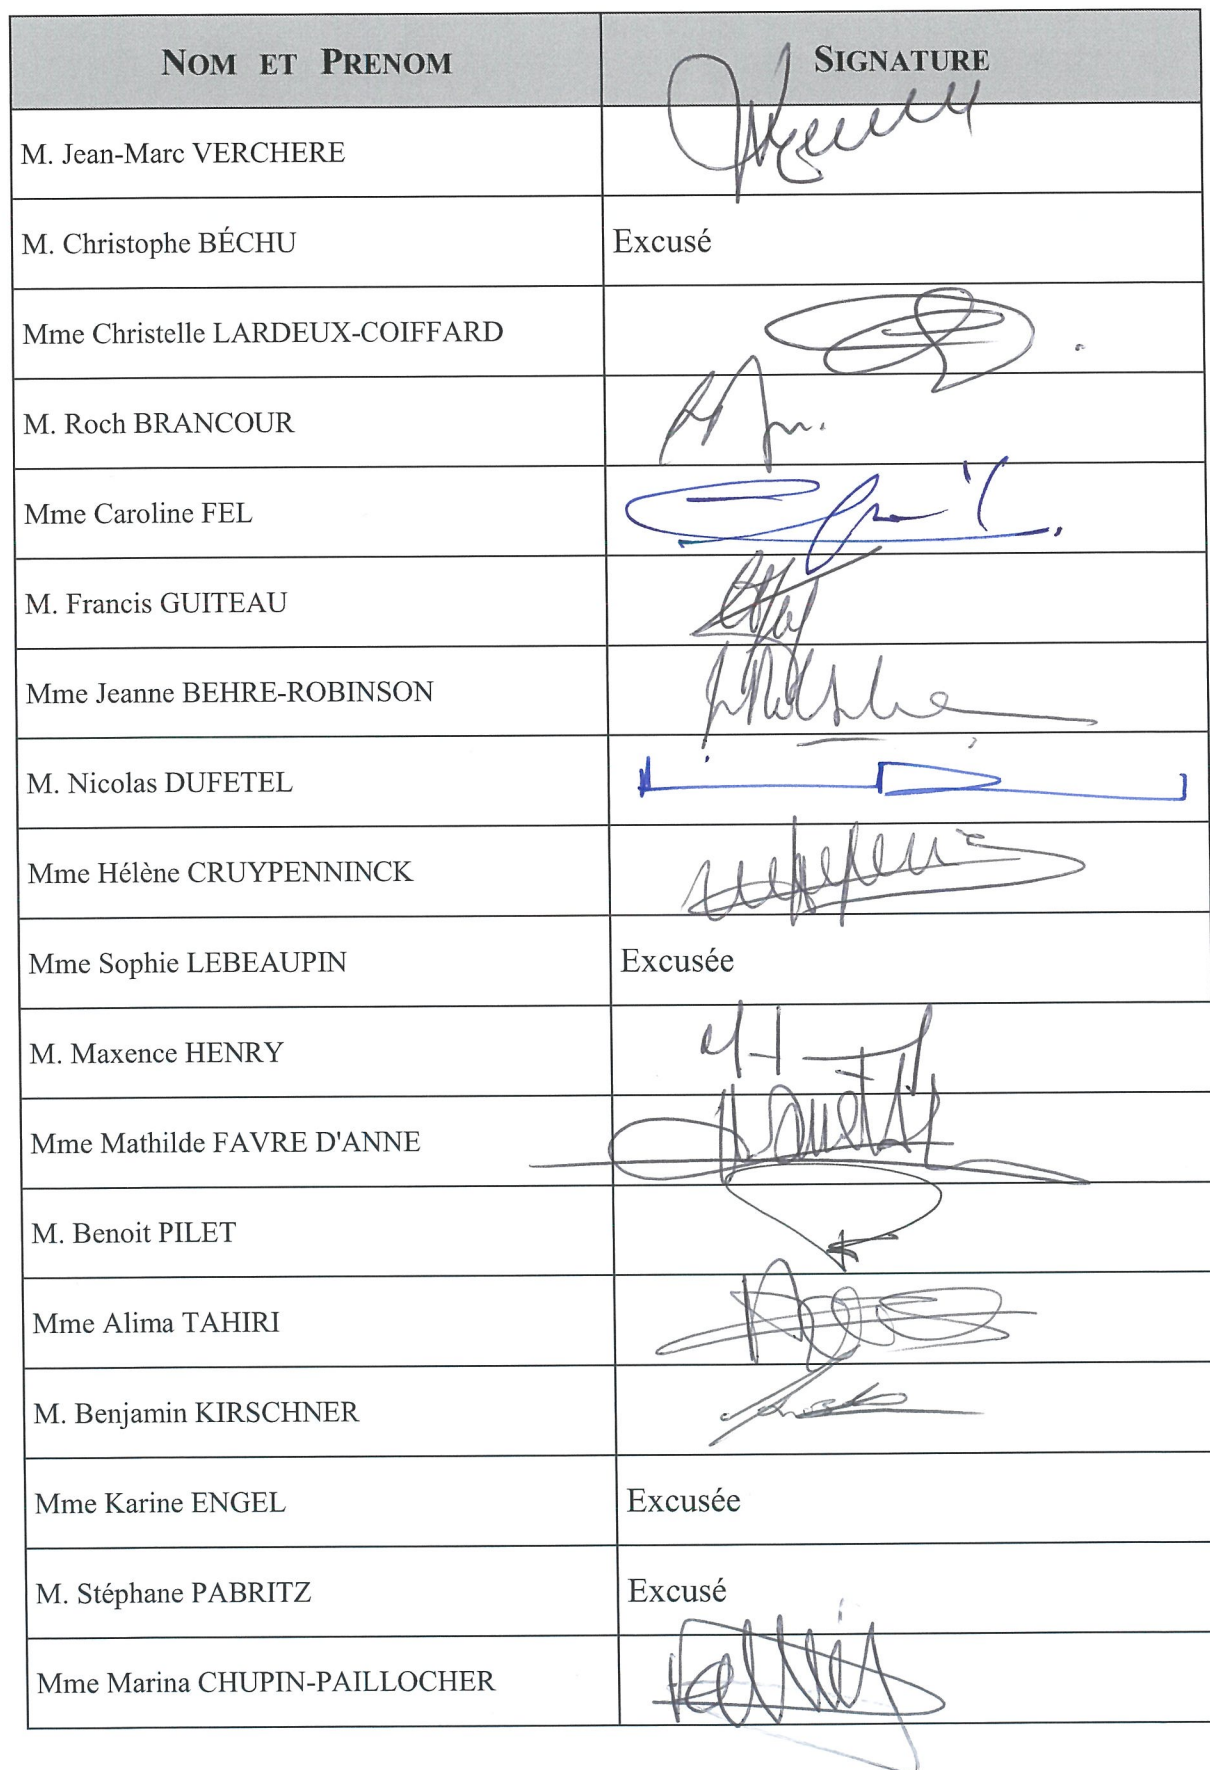 NOM ET PRENOM SIGNATURE
M. Jean-Marc VERCHERE
M. Christophe BÉCHU Excusé
Mme Christelle LARDEUX-COIFFARD
M. Roch BRANCOUR
Mme Caroline FEL
M. Francis GUITEAU
Mme Jeanne BEHRE-ROBINSON
M. Nicolas DUFETEL
Mme Hélène CRUYPENNINCK
Mme Sophie LEBEAUPIN Excusée
M. Maxence HENRY
Mme Mathilde FAVRE D'ANNE
M. Benoit PILET
Mme Alima TAHIRI
M. Benjamin KIRSCHNER
Mme Karine ENGEL Excusée
M. Stéphane PABRITZ Excusé
Mme Marina CHUPIN-PAILLOCHER